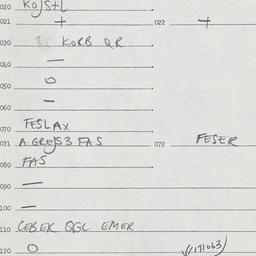 020 KOJS+L
021 + 022 +
030 KORB QR
040 —
050 O
060 —
070 FESLAX
071 A GREJS3 FAS 072 FESER
080 FAS
090 —
100 —
110 CEBEK QGC EMER
120 O